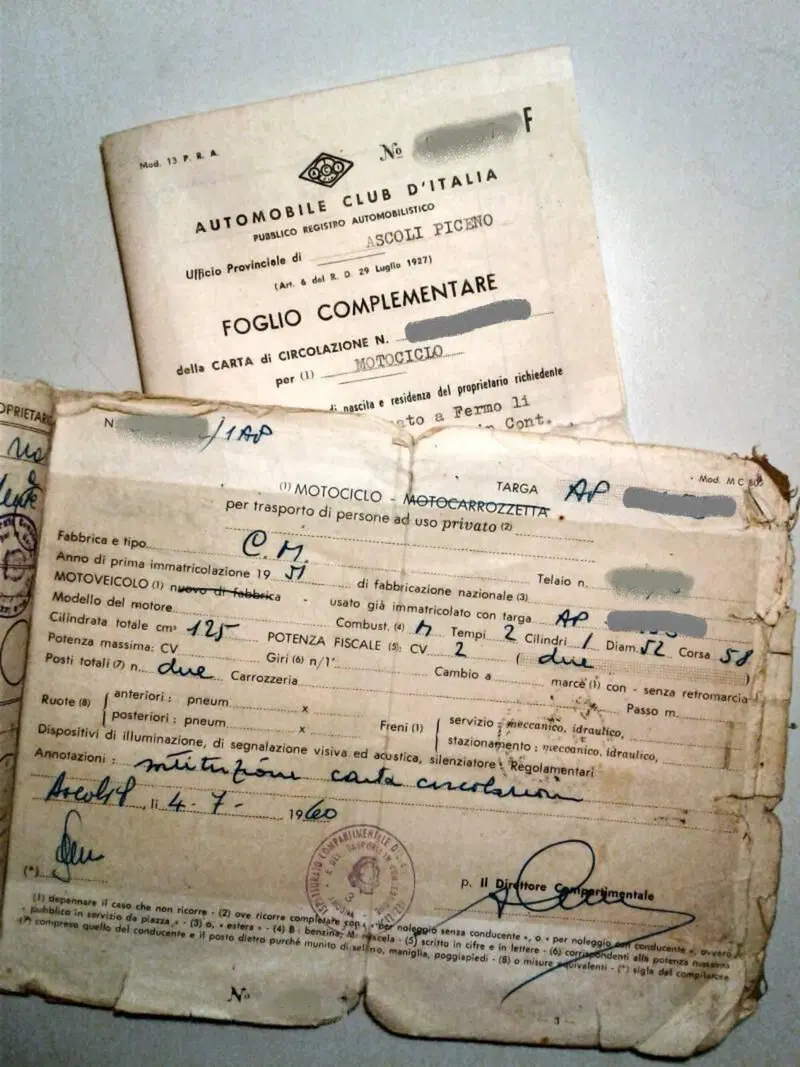 Mod. 13 P. R. A.
No F
ACI
AUTOMOBILE CLUB D'ITALIA
PUBBLICO REGISTRO AUTOMOBILISTICO
Ufficio Provinciale di ASCOLI PICENO
(Art. 6 del R. D. 29 Luglio 1927)
FOGLIO COMPLEMENTARE
della CARTA di CIRCOLAZIONE N.
per (1) MOTOCICLO
di nascita e residenza del proprietario richiedente
ato a Fermo li
Cont.
OPRIETAR
N /1AP
TARGA AP
Mod. M C 805
(1) MOTOCICLO - MOTOCARROZZETTA
per trasporto di persone ad uso privato (2)
Fabbrica e tipo C.M.
Telaio n.
Anno di prima immatricolazione 19 51 di fabbricazione nazionale (3)
MOTOVEICOLO (1) nuovo di fabbrica - usato già immatricolato con targa AP
Modello del motore Combust. (4) M Tempi 2 Cilindri 1 Diam. 52 Corsa 58
Cilindrata totale cm³ 125 POTENZA FISCALE (5): CV 2 ( due )
Potenza massima: CV Giri (6) n/1' Cambio a marce (1) con - senza retromarcia
Posti totali (7) n. due Carrozzeria Passo m.
Ruote (8) anteriori: pneum. x
posteriori: pneum. x
Freni (1) servizio: meccanico, idraulico,
stazionamento: meccanico, idraulico,
Dispositivi di illuminazione, di segnalazione visiva ed acustica, silenziatore: Regolamentari
Annotazioni: sostituzione carta circolazione
Ascoli P, li 4-7- 1960
(*)
p. Il Direttore Compartimentale
(1) depennare il caso che non ricorre - (2) ove ricorre completare con « per noleggio senza conducente », o « per noleggio con conducente », ovvero
pubblico in servizio da piazza - (3) o, « estera » - (4) B: benzina; M: miscela - (5) scritto in cifre e in lettere - (6) corrispondenti alla potenza massima
(7) compreso quello del conducente e il posto dietro purché munito di sellino, maniglia, poggiapiedi - (8) o misure equivalenti - (*) sigla del compilatore
No
3